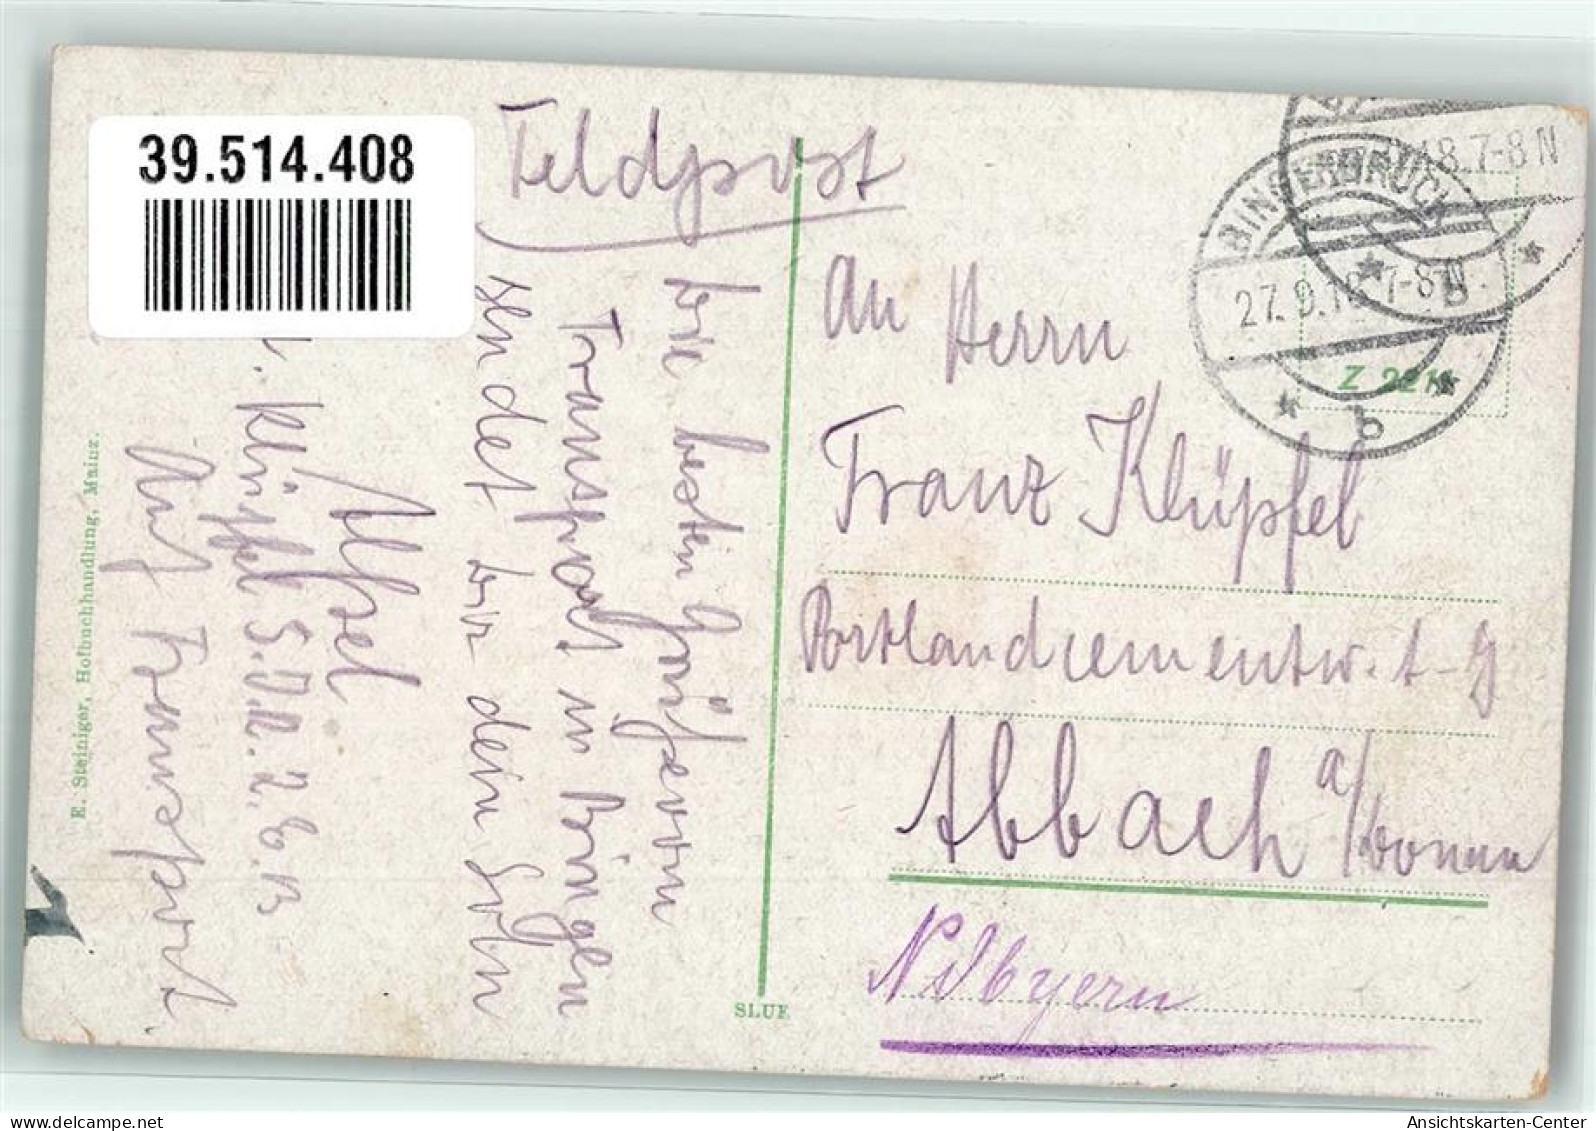 39.514.408
Feldpost
Die besten Grüße vom
Transport in Bingen
sendet dir dein Sohn
Alfred
Klüpfel 5.
Auf Transport.
An Herrn
Franz Klüpfel
Portlandcementw. A-G
Abbach a/Donau
BINGERBRÜCK
27. 9. 18 7-8 N.
b
18.7-8 N
Z 2211
E. Steiniger, Hofbuchhandlung, Mainz.
SLUB
Ansichtskarten-Center